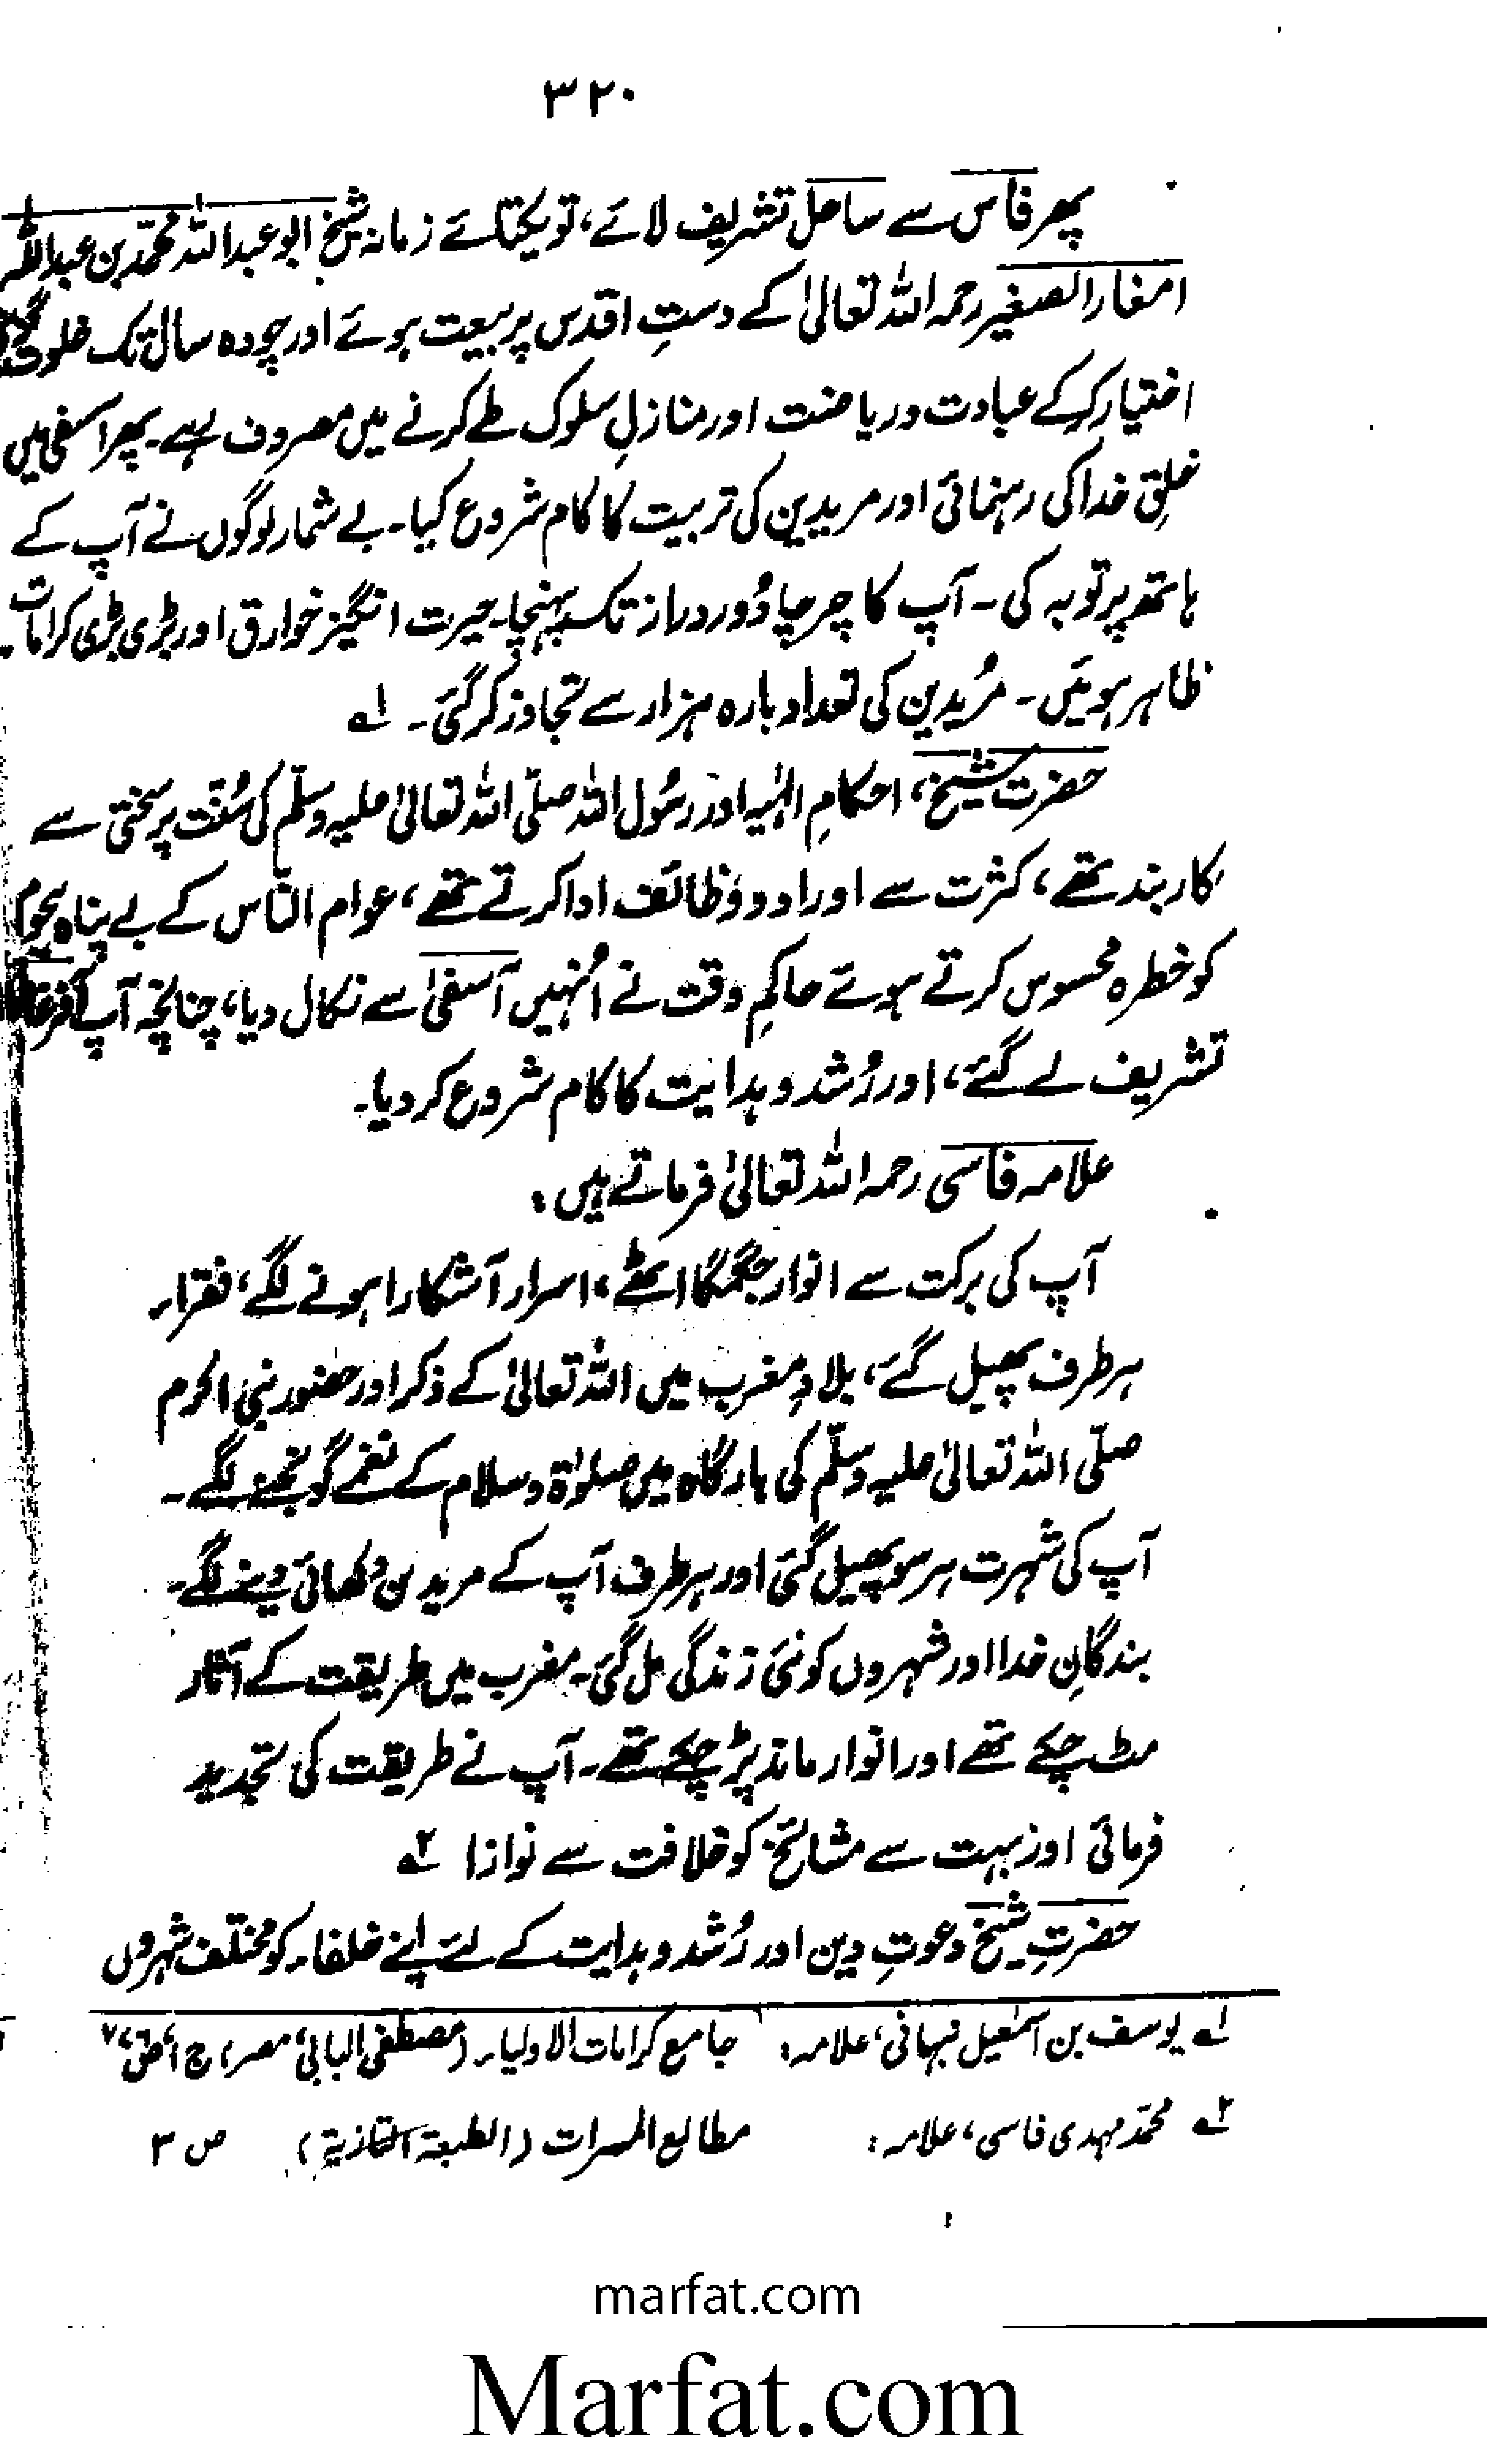 ۳۲۰
پھر فاس سے ساحل تشریف لائے، تو یکتائے زمانہ شیخ ابو عبداللہ محمّد بن عبداللہ
امغار الصغیر رحمہ اللہ تعالیٰ کے دستِ اقدس پر بیعت ہوئے اور چودہ سال تک خلوت
اختیار کر کے عبادت و ریاضت اور منازلِ سلوک طے کرنے میں مصروف رہے۔ پھر آسفی میں
خلقِ خدا کی رہنمائی اور مریدین کی تربیت کا کام شروع کیا۔ بے شمار لوگوں نے آپ کے
ہاتھ پر توبہ کی۔ آپ کا چرچا دُور دراز تک پہنچا۔ حیرت انگیز خوارق اور بڑی بڑی کرامات
ظاہر ہوئیں۔ مُریدین کی تعداد بارہ ہزار سے تجاوز کر گئی۔ ۱؎
حضرت شیخ، احکامِ الٰہیہ اور رسُول اللہ صلّی اللہ تعالیٰ علیہ وسلّم کی سُنّت پر سختی سے
کاربند تھے، کثرت سے اوراد و وظائف ادا کرتے تھے، عوام النّاس کے بے پناہ ہجوم
کو خطرہ محسوس کرتے ہوئے حاکمِ وقت نے اُنہیں آسفیٰ سے نکال دیا، چنانچہ آپ
تشریف لے گئے، اور رُشد و ہدایت کا کام شروع کر دیا۔
علامہ فاسی رحمہ اللہ تعالیٰ فرماتے ہیں:
آپ کی برکت سے انوار جگمگا اٹھے، اسرار آشکارا ہونے لگے، فقراء
ہر طرف پھیل گئے، بلادِ مغرب میں اللہ تعالیٰ کے ذکر اور حضور نبی اکرم
صلّی اللہ تعالیٰ علیہ وسلّم کی بارگاہ میں صلوٰۃ و سلام کے نغمے گونجنے لگے۔
آپ کی شہرت ہر سو پھیل گئی اور ہر طرف آپ کے مریدین دکھائی دینے لگے۔
بندگانِ خدا اور شہروں کو نئی زندگی مل گئی۔ مغرب میں طریقت کے آثار
مٹ چکے تھے اور انوار ماند پڑ چکے تھے۔ آپ نے طریقت کی تجدید
فرمائی اور بہت سے مشائخ کو خلافت سے نوازا ۲؎
حضرتِ شیخ دعوتِ دین اور رُشد و ہدایت کے لئے اپنے خلفاء کو مختلف شہروں
۱؎ یوسف بن اسمٰعیل نبہانی، علامہ: جامع کرامات الاولیاء (مصطفی البابی، مصر) ج ۱، ص
۲؎ محمّد مہدی فاسی، علامہ: مطالع المسرات (الطبعۃ التازیۃ) ص ۳
marfat.com
Marfat.com